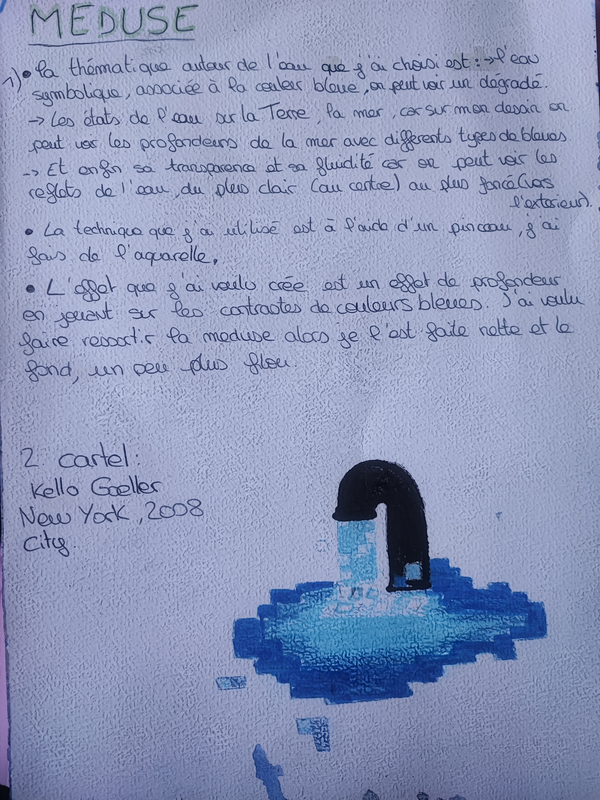 MEDUSE
1) • la thématique autour de l'eau que j'ai choisi est : → l'eau
symbolique, associée à la couleur bleue, on peut voir un dégradé.
→ Les états de l'eau sur la Terre, la mer, car sur mon dessin on
peut voir les profondeurs de la mer avec différents types de bleues.
→ Et enfin sa transparence et sa fluidité car on peut voir les
reflets de l'eau, du plus clair (au centre) au plus foncé (vers
l'exterieur).
• La technique que j'ai utilisé est à l'aide d'un pinceau, j'ai
fais de l'aquarelle.
• L'effet que j'ai voulu crée est un effet de profondeur
en jouent sur les contrastes de couleurs bleues. J'ai voulu
faire ressortir la meduse alors je l'est faite nette et le
fond, un peu plus flou.
2 cartel :
Kello Goeller
New York, 2008
City.